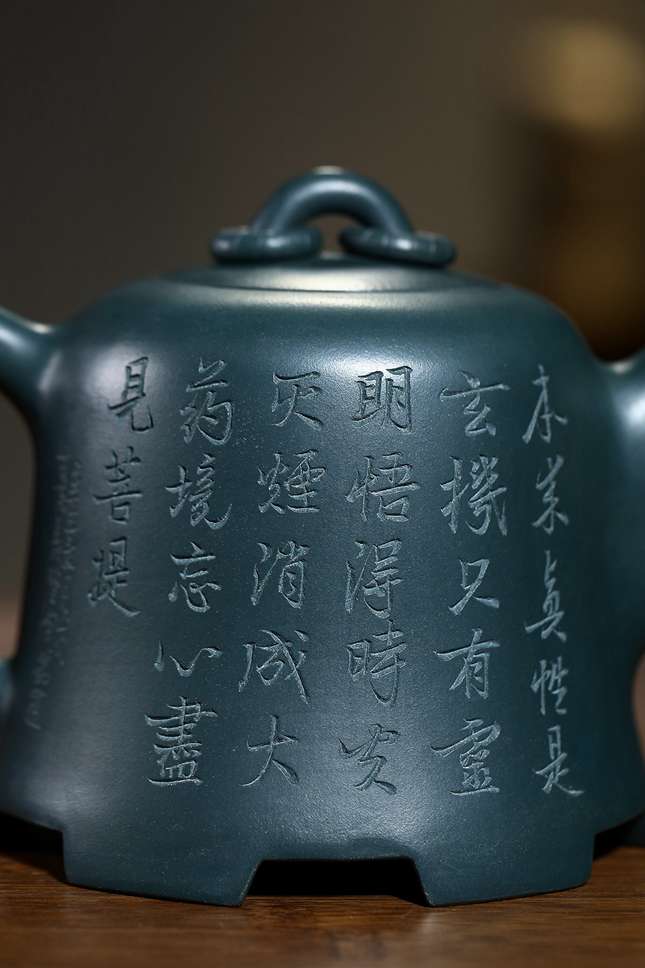 本来真性是
玄機只有靈
明悟得時炎
灭煙消成大
药境忘心盡
見菩提